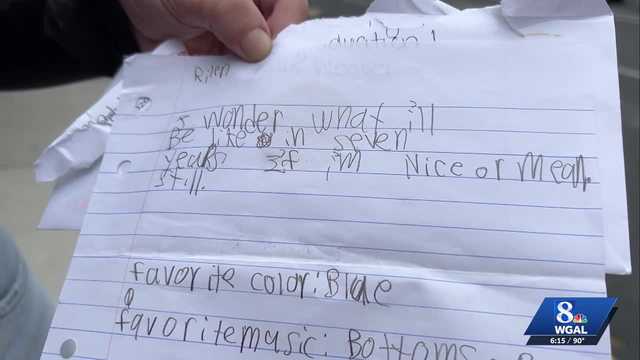 Riley
I wonder what ill
Be like in seven
years. If im Nice or Mean
still.
favorite color: Blue
favorite music: Bottoms
8
WGAL
6:15 / 90°